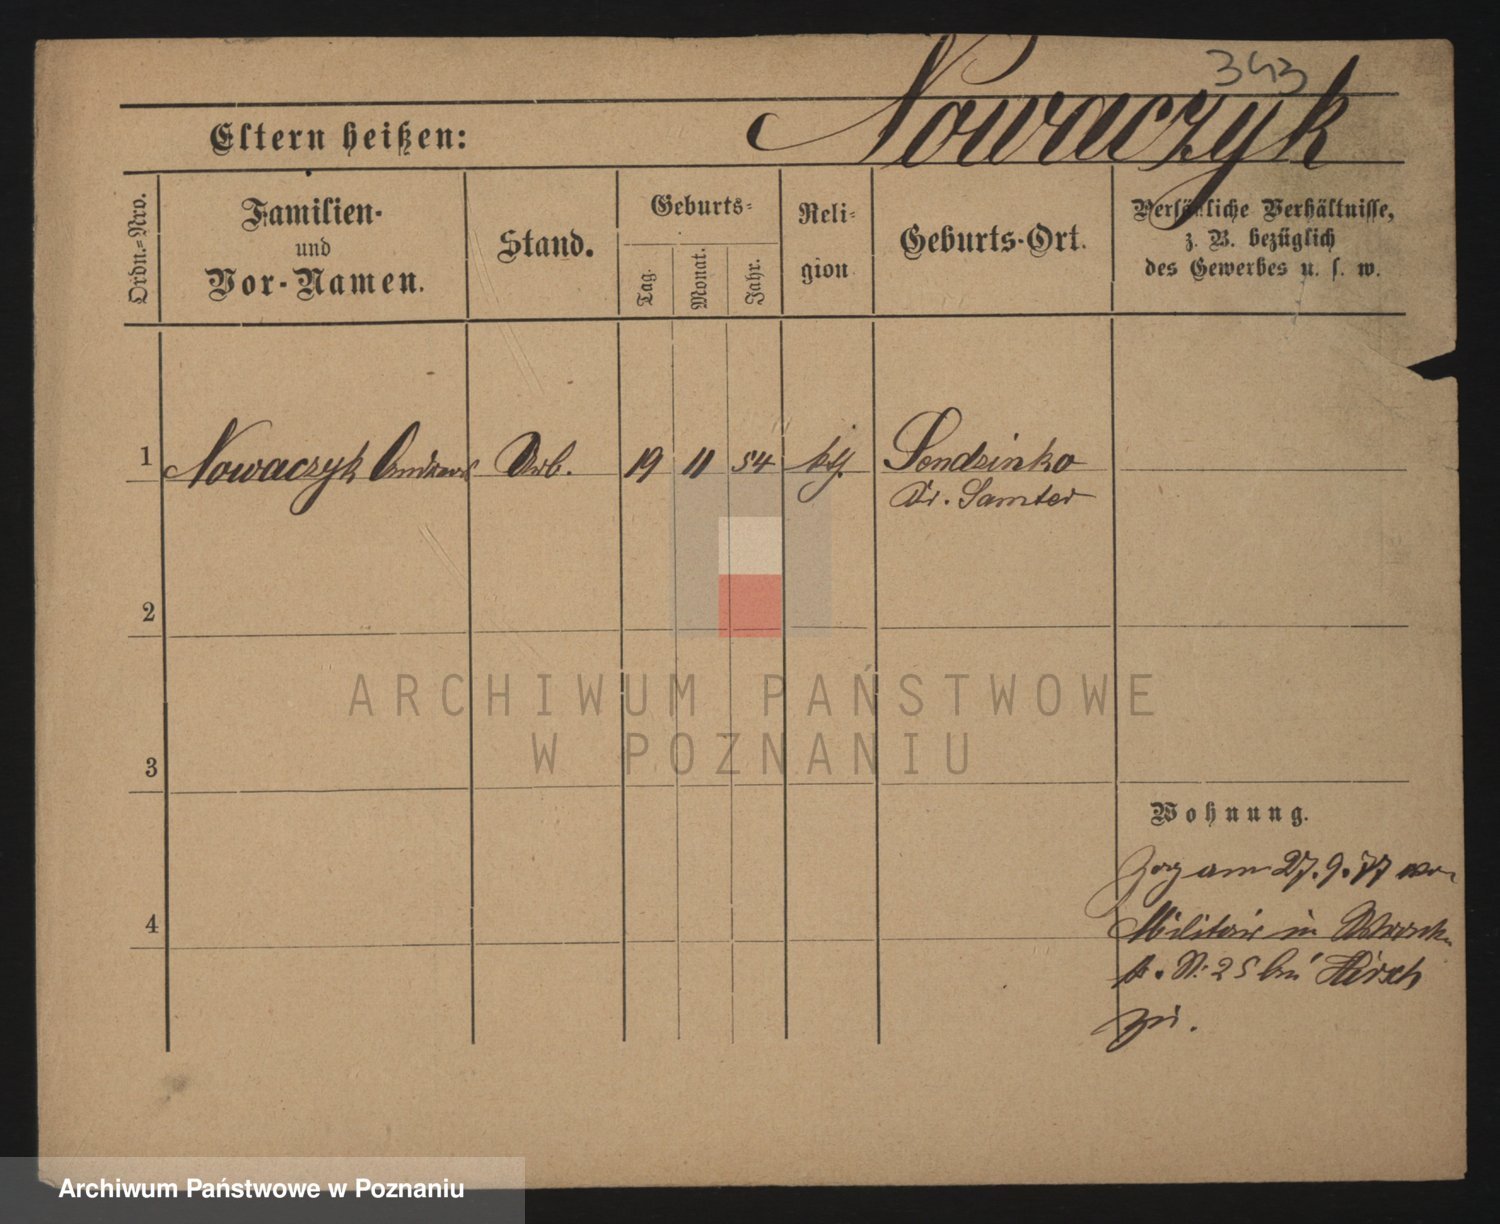 343
Nowaczyk
Eltern heißen:
Ordn.-Nro.
Familien-
und
Vor-Namen.
Stand.
Geburts-
Tag.
Monat.
Jahr.
Reli-
gion
Geburts-Ort.
Persönliche Verhältnisse,
z. B. bezüglich
des Gewerbes u. s. w.
1 Nowaczyk Andreas Arb. 19 11 54 kth. Sendzinko
Kr. Samter
2
3
4
Wohnung.
Zog am 27.9.77 vom
Militair in
No 25 bei Hirsch
zu.
ARCHIWUM PAŃSTWOWE
W POZNANIU
Archiwum Państwowe w Poznaniu